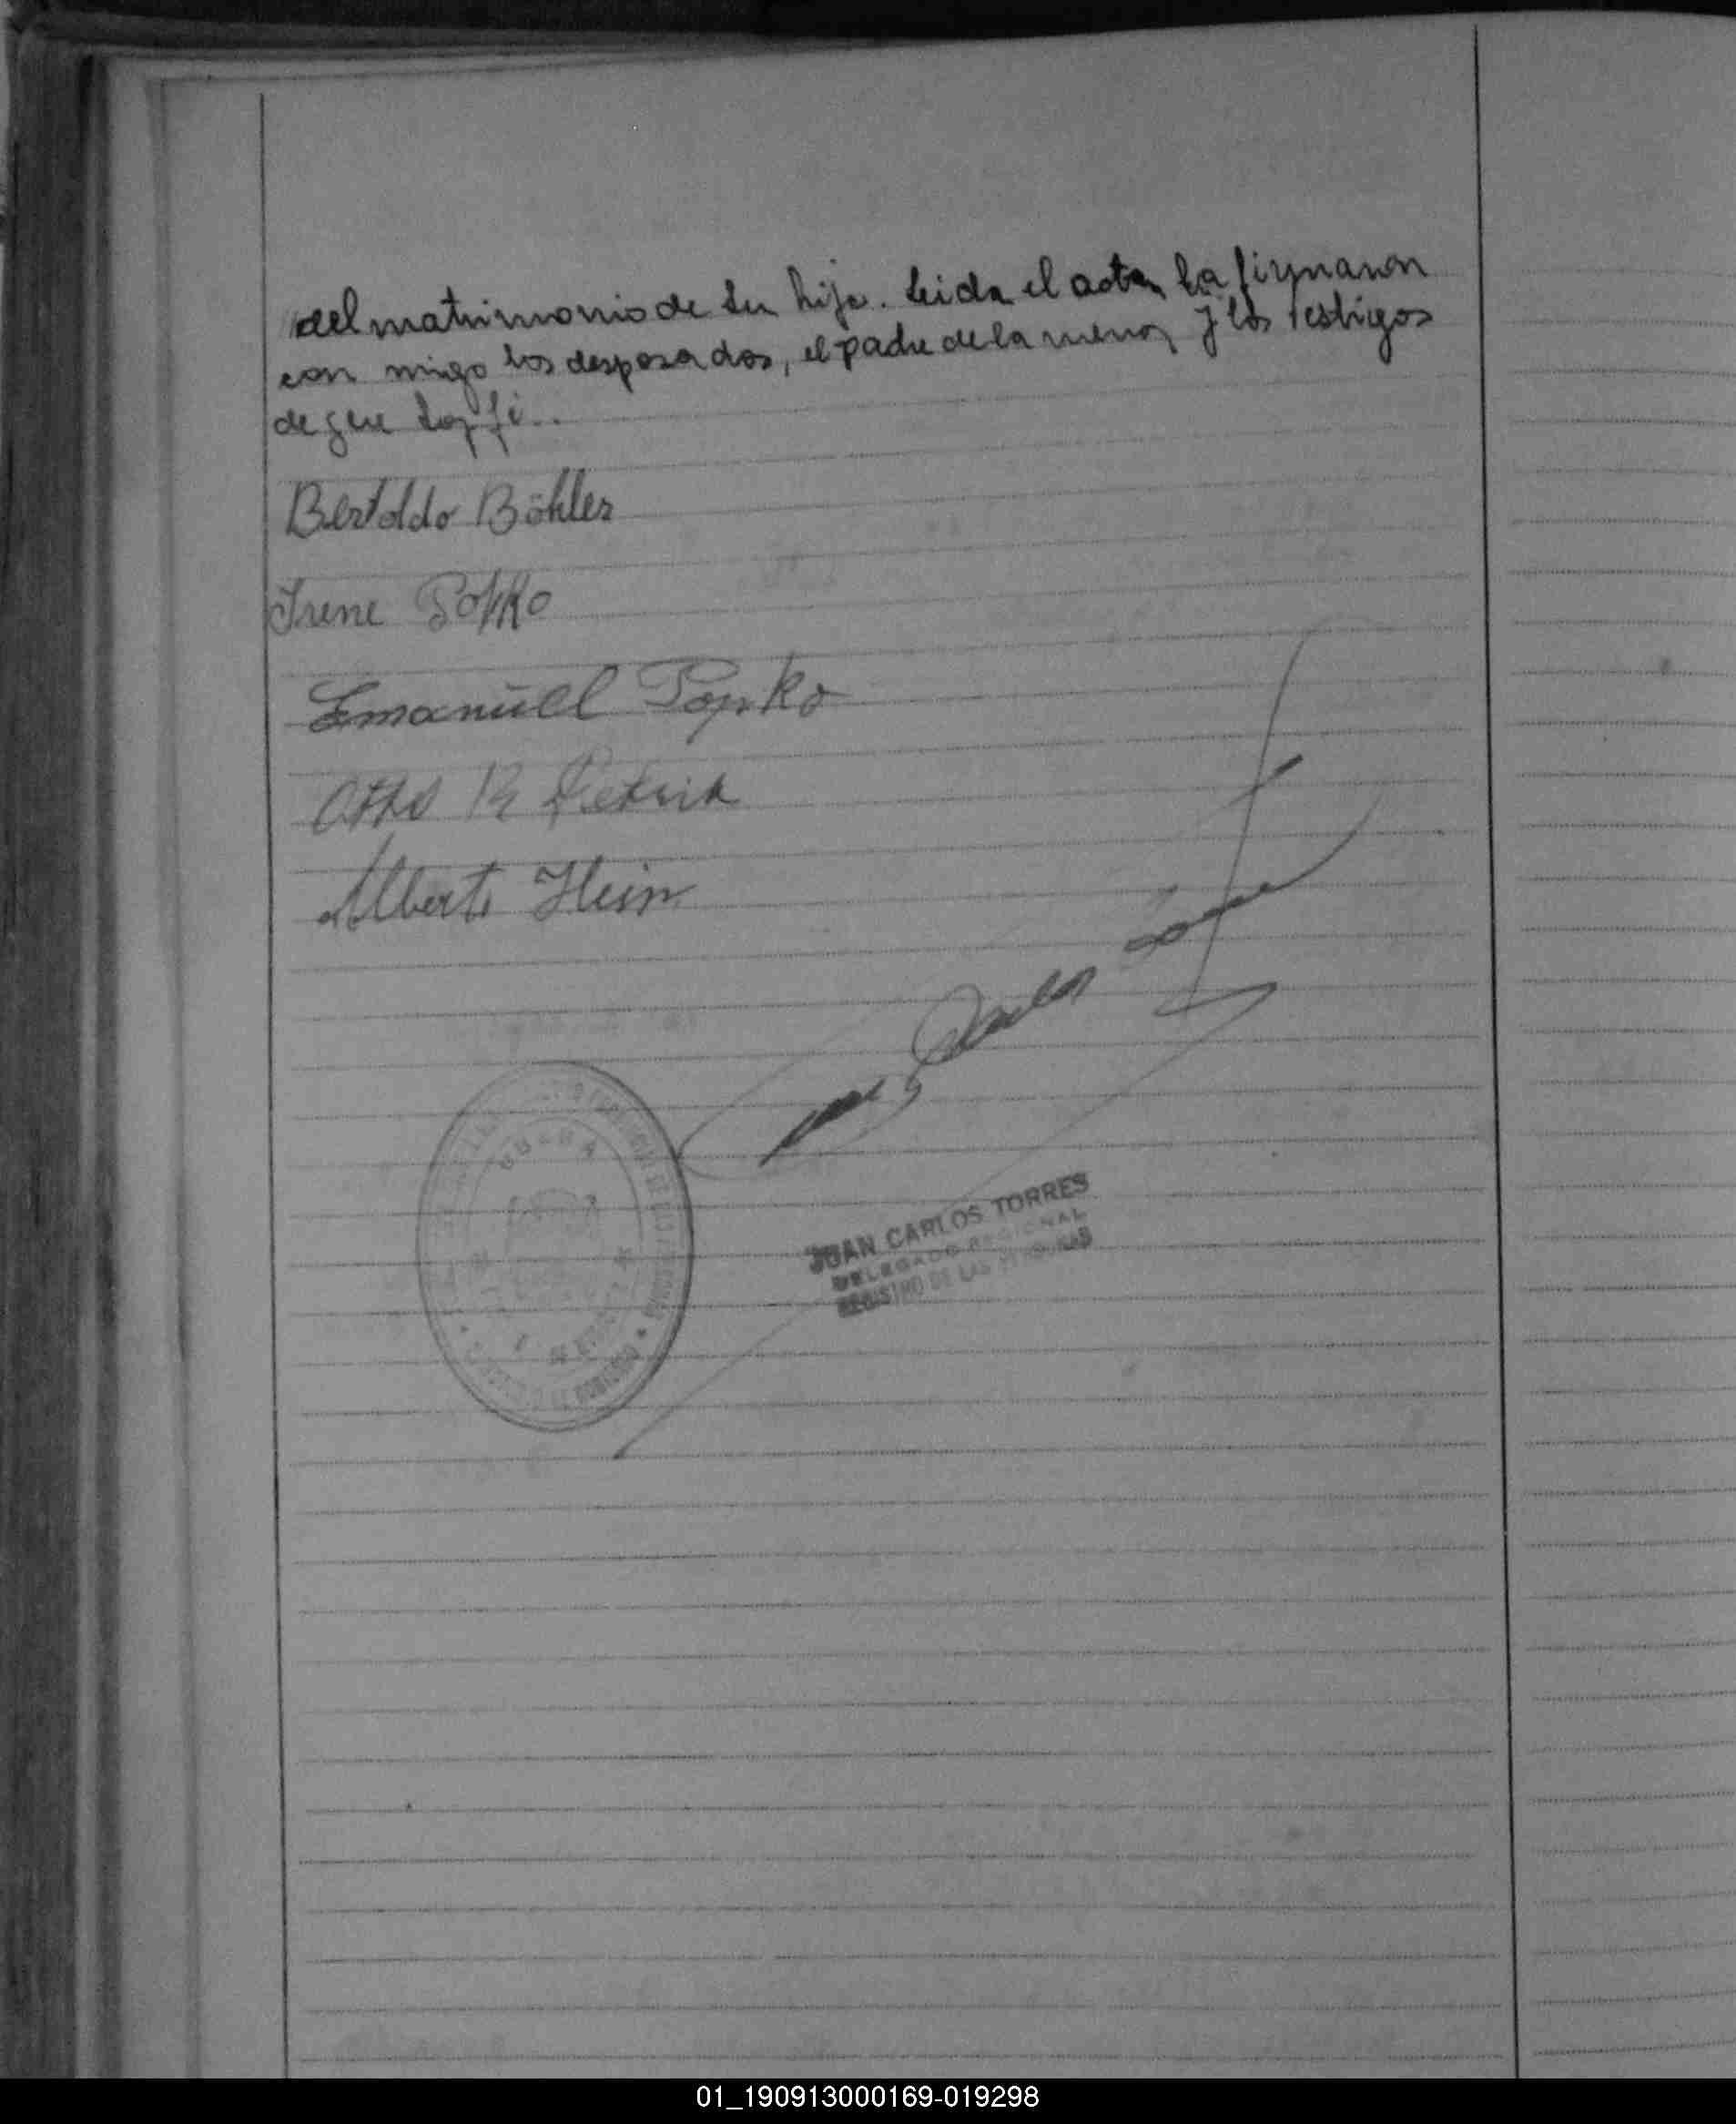 del matrimonio de su hija. Leida el acta, la firmaron
con migo los desposados, el padre de la menor y los testigos
de que doy fé..
Bertoldo Böhler
Irene Popko
Emanuel Popko
Otto R
Alberto Hein
Juan Carlos Torres
JUAN CARLOS TORRES
DELEGADO REGIONAL
REGISTRO DE LAS PERSONAS
01_190913000169-019298